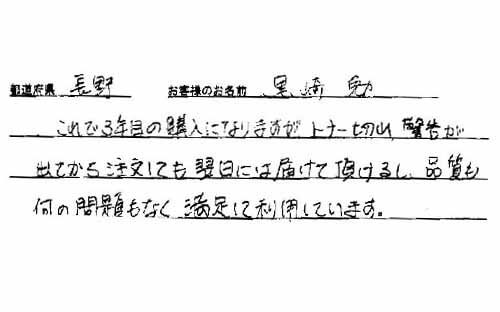 都道府県 長野 お客様のお名前 黒崎 勉
これで3年目の購入になりますが、トナー切れ警告が
出てから注文しても翌日には届けて頂けるし、品質も
何の問題もなく満足して利用しています。